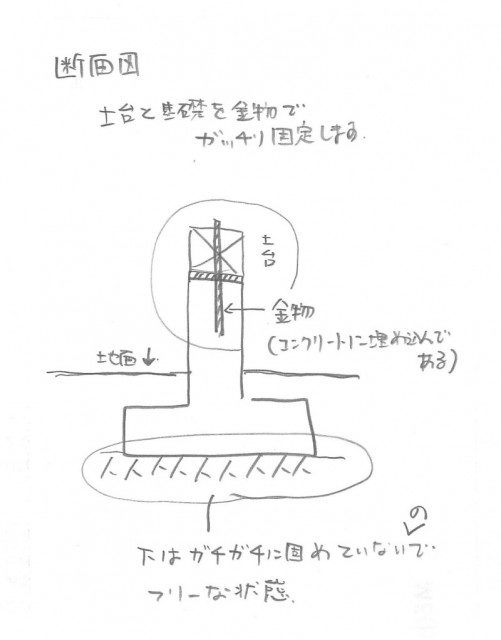 断面図
土台と基礎を金物で
ガッチリ固定します。
土台
金物
(コンクリートに埋め込んで
ある)
地面↓
の
下はガチガチに固めていないで
フリーな状態。